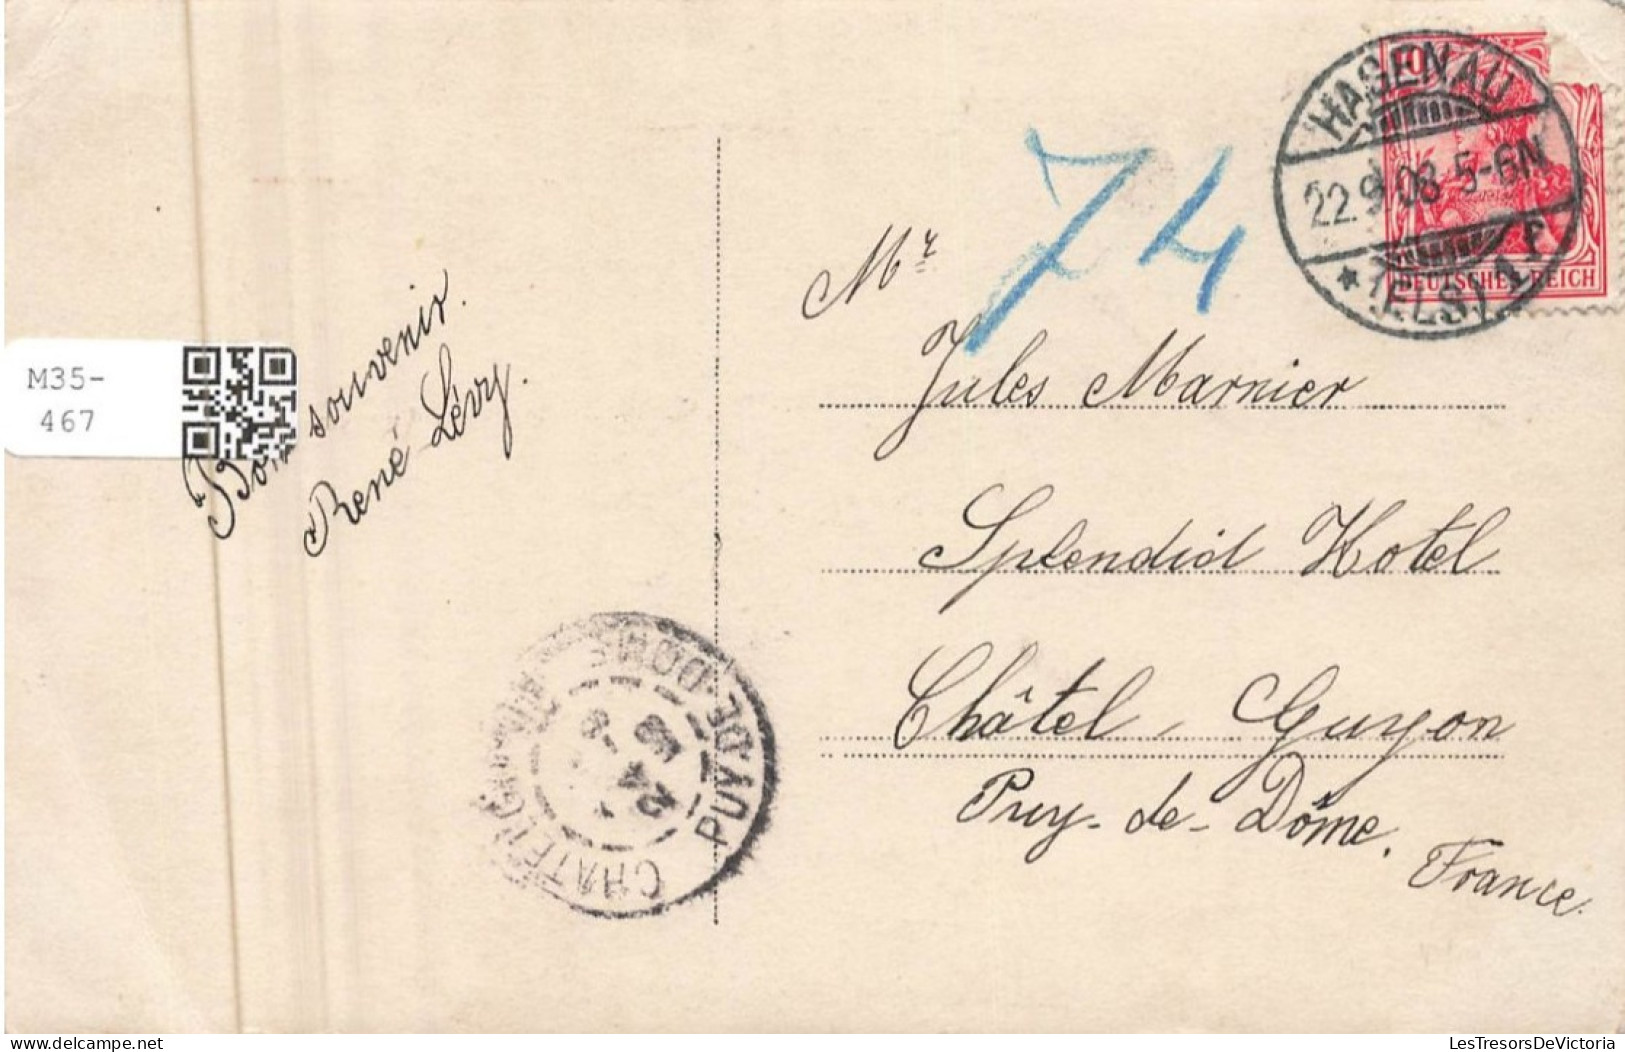 M35-
467
Bon souvenir.
René Lévy.
74
HAGENAU
22.9.08.5-6N
* (ELS.) 1 F
10
DEUTSCHES REICH
Mr
Jules Marnier
Splendid Hotel
Châtel-Guyon
Puy-de-Dôme.
France.
CHATEL-GUYON
PUY-DE-DOME
24
LesTresorsDeVictoria